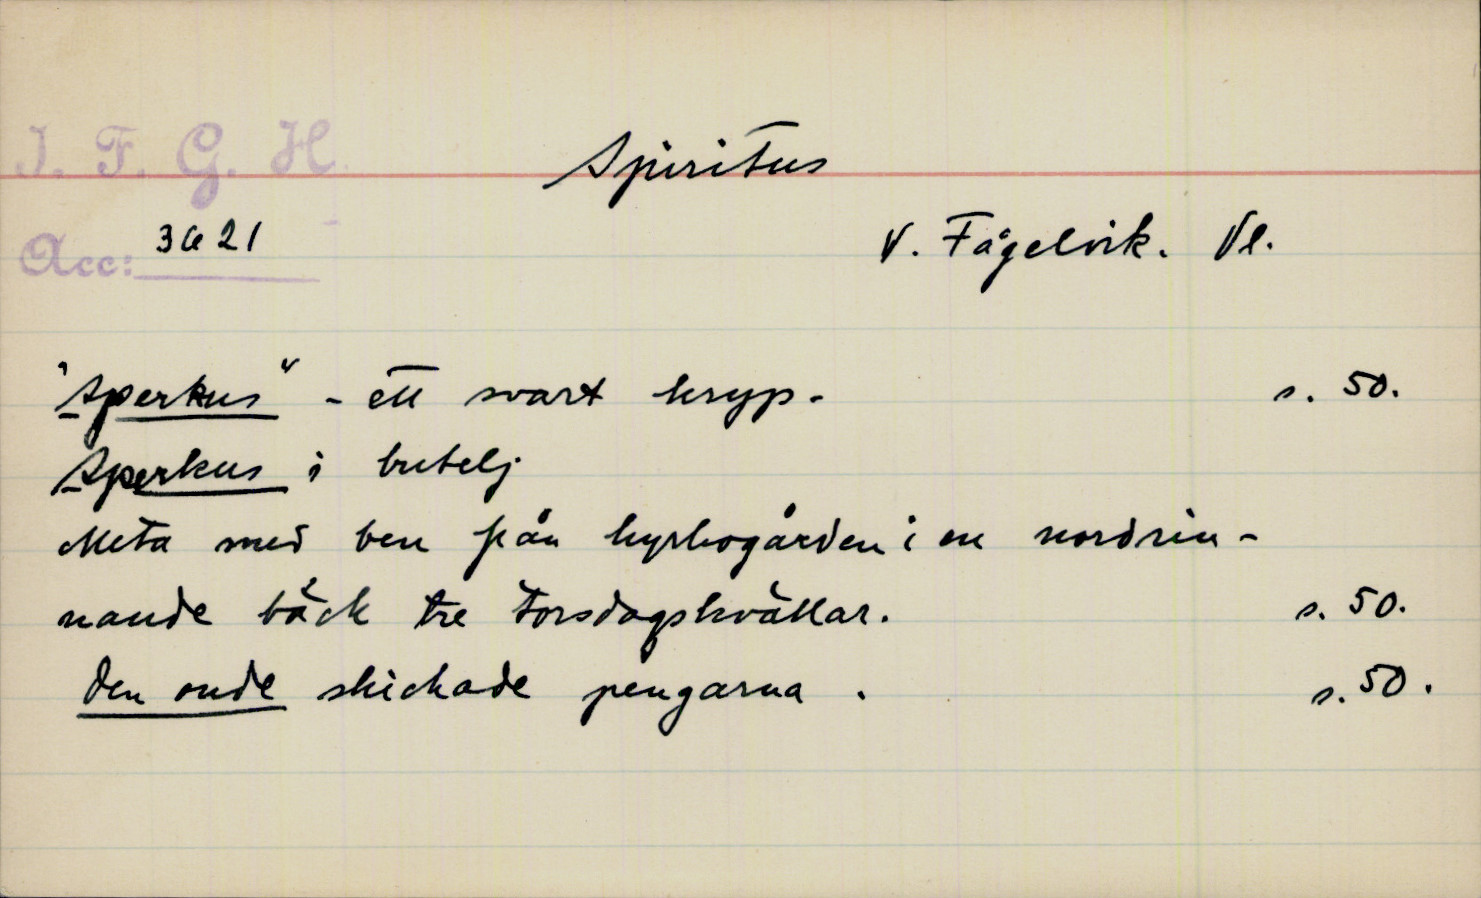 I. F. G. H.
Spiritus
Acc: 3621
V. Fågelvik. Vl.
"Sperkus" - ett svart kryp. s. 50.
Sperkus i butelj
Meta med ben från kyrkogården i en nordrin-
nande bäck tre torsdagskvällar. s. 50.
Den onde skickade pengarna. s. 50.